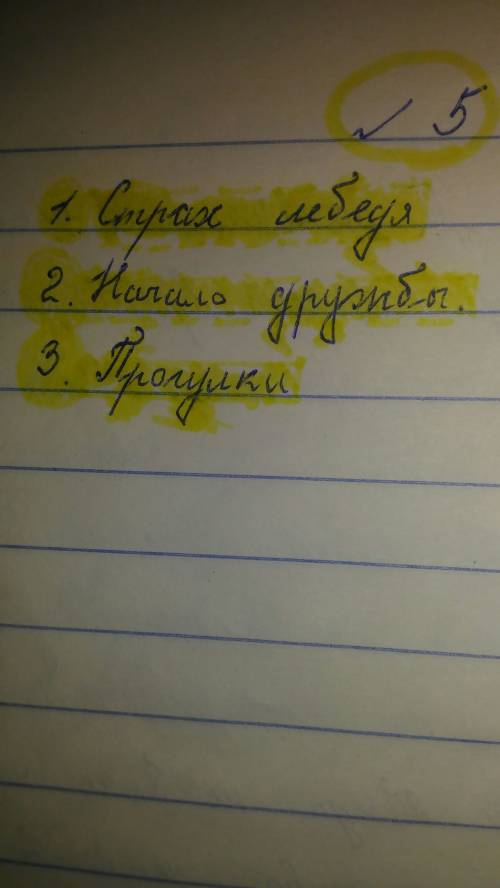 ✓ 5
1. Страх лебедя
2. Начало дружбы.
3. Прогулки